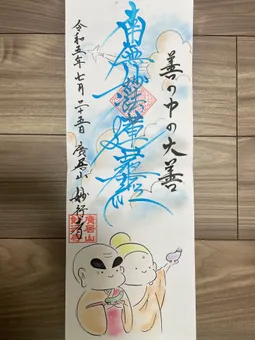 善の中の大善
南無妙法蓮華経
令和五年七月二十五日 廣居山 妙行寺
廣居山